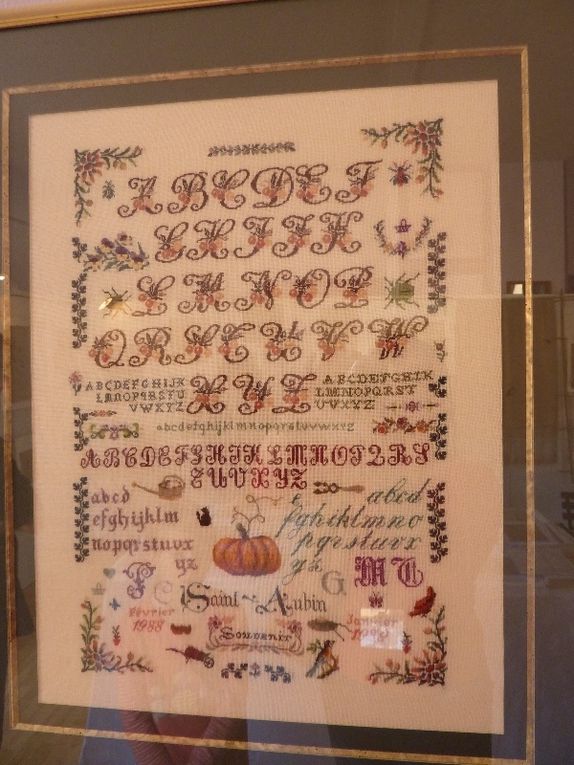 A B C D E F
G H I J K
L M N O P
Q R S T U V W
ABCDEFGHIJK
LMNOPQRST
UVWXYZ
X Y Z
ABCDEFGHIJK
LMNOPQRST
UVWXYZ
abcdefghijklmnopqrstuvwxyz
ABCDEFGHIJKLMNOPQRS
TUVXYZ
abcd
efghijklm
nopqrstuvx
yz
abcd
e
fghiklmno
pqrstuvx
yz
P
G
M T
Saint Aubin
Février
1988
Janvier
Souvenir